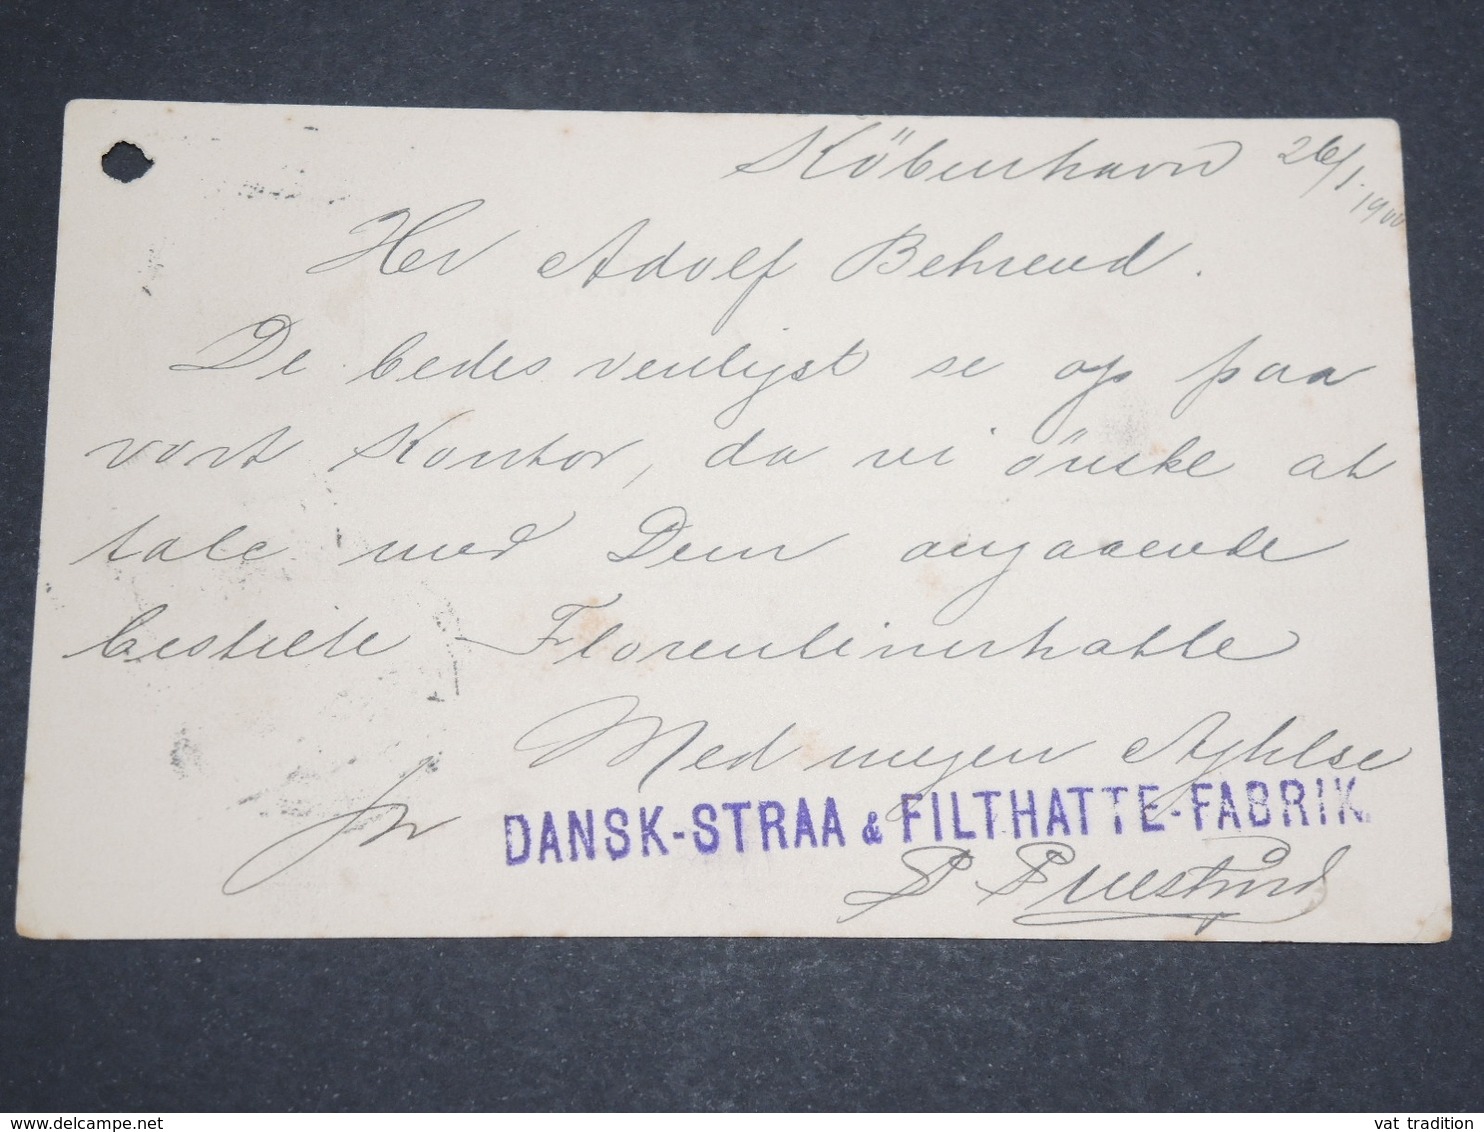 Köbenhavn 26/1. 1900
Hr Adolf Behrend.
De bedes venligst se op paa
vort Kontor, da vi önske at
tale med Dem angaaende
bestilte Florentinerhatte
Med megen Agtelse
pr DANSK-STRAA & FILTHATTE-FABRIK.
P
delcampe.net
vat tradition